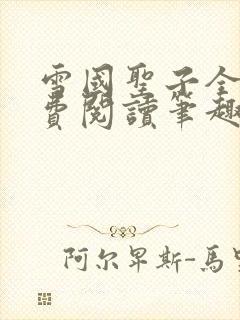 雪國聖子全
費閱讀筆趣
阿尔卑斯-馬